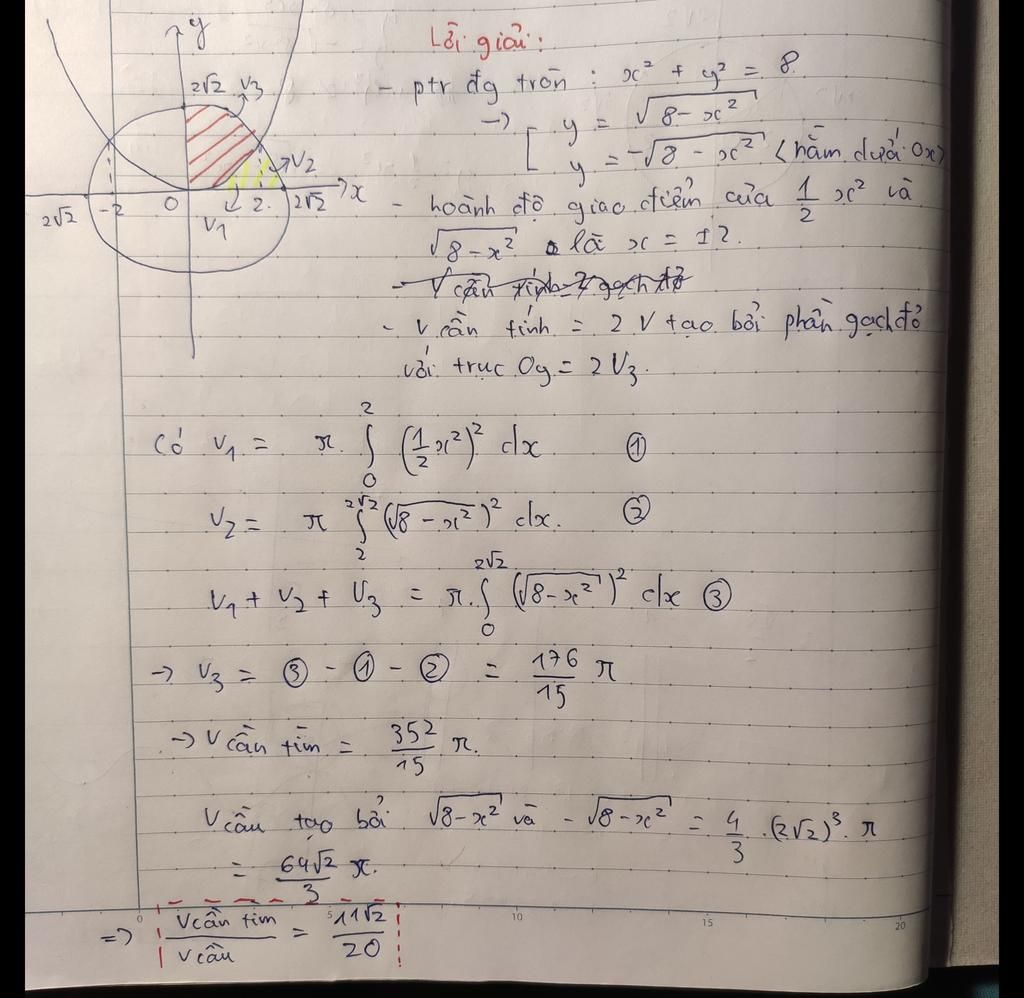 y
2√2 V3
V2
x
2√2 -2 O 2 2√2
V1
Lời giải:
- ptr đg tròn : x² + y² = 8
→ [ y = √(8-x²)
y = -√(8-x²) (nằm dưới Ox)
- hoành độ giao điểm của 1/2 x² và
√(8-x²) là x = ±2.
- V cần tính = 2 V tạo bởi phần gạch đỏ
với trục Oy = 2V3.
Có V1 = π. ∫₀² (1/2 x²)² dx ①
V2 = π ∫₂^(2√2) (√(8-x²))² dx. ②
V1 + V2 + V3 = π. ∫₀^(2√2) (√(8-x²))² dx ③
→ V3 = ③ - ① - ② = 176/15 π
→ V cần tìm = 352/15 π.
V cầu tạo bởi √(8-x²) và -√(8-x²) = 4/3 .(2√2)³. π
= 64√2/3 π.
0 5 10 15 20
=> V cần tìm / V cầu = 11√2/20